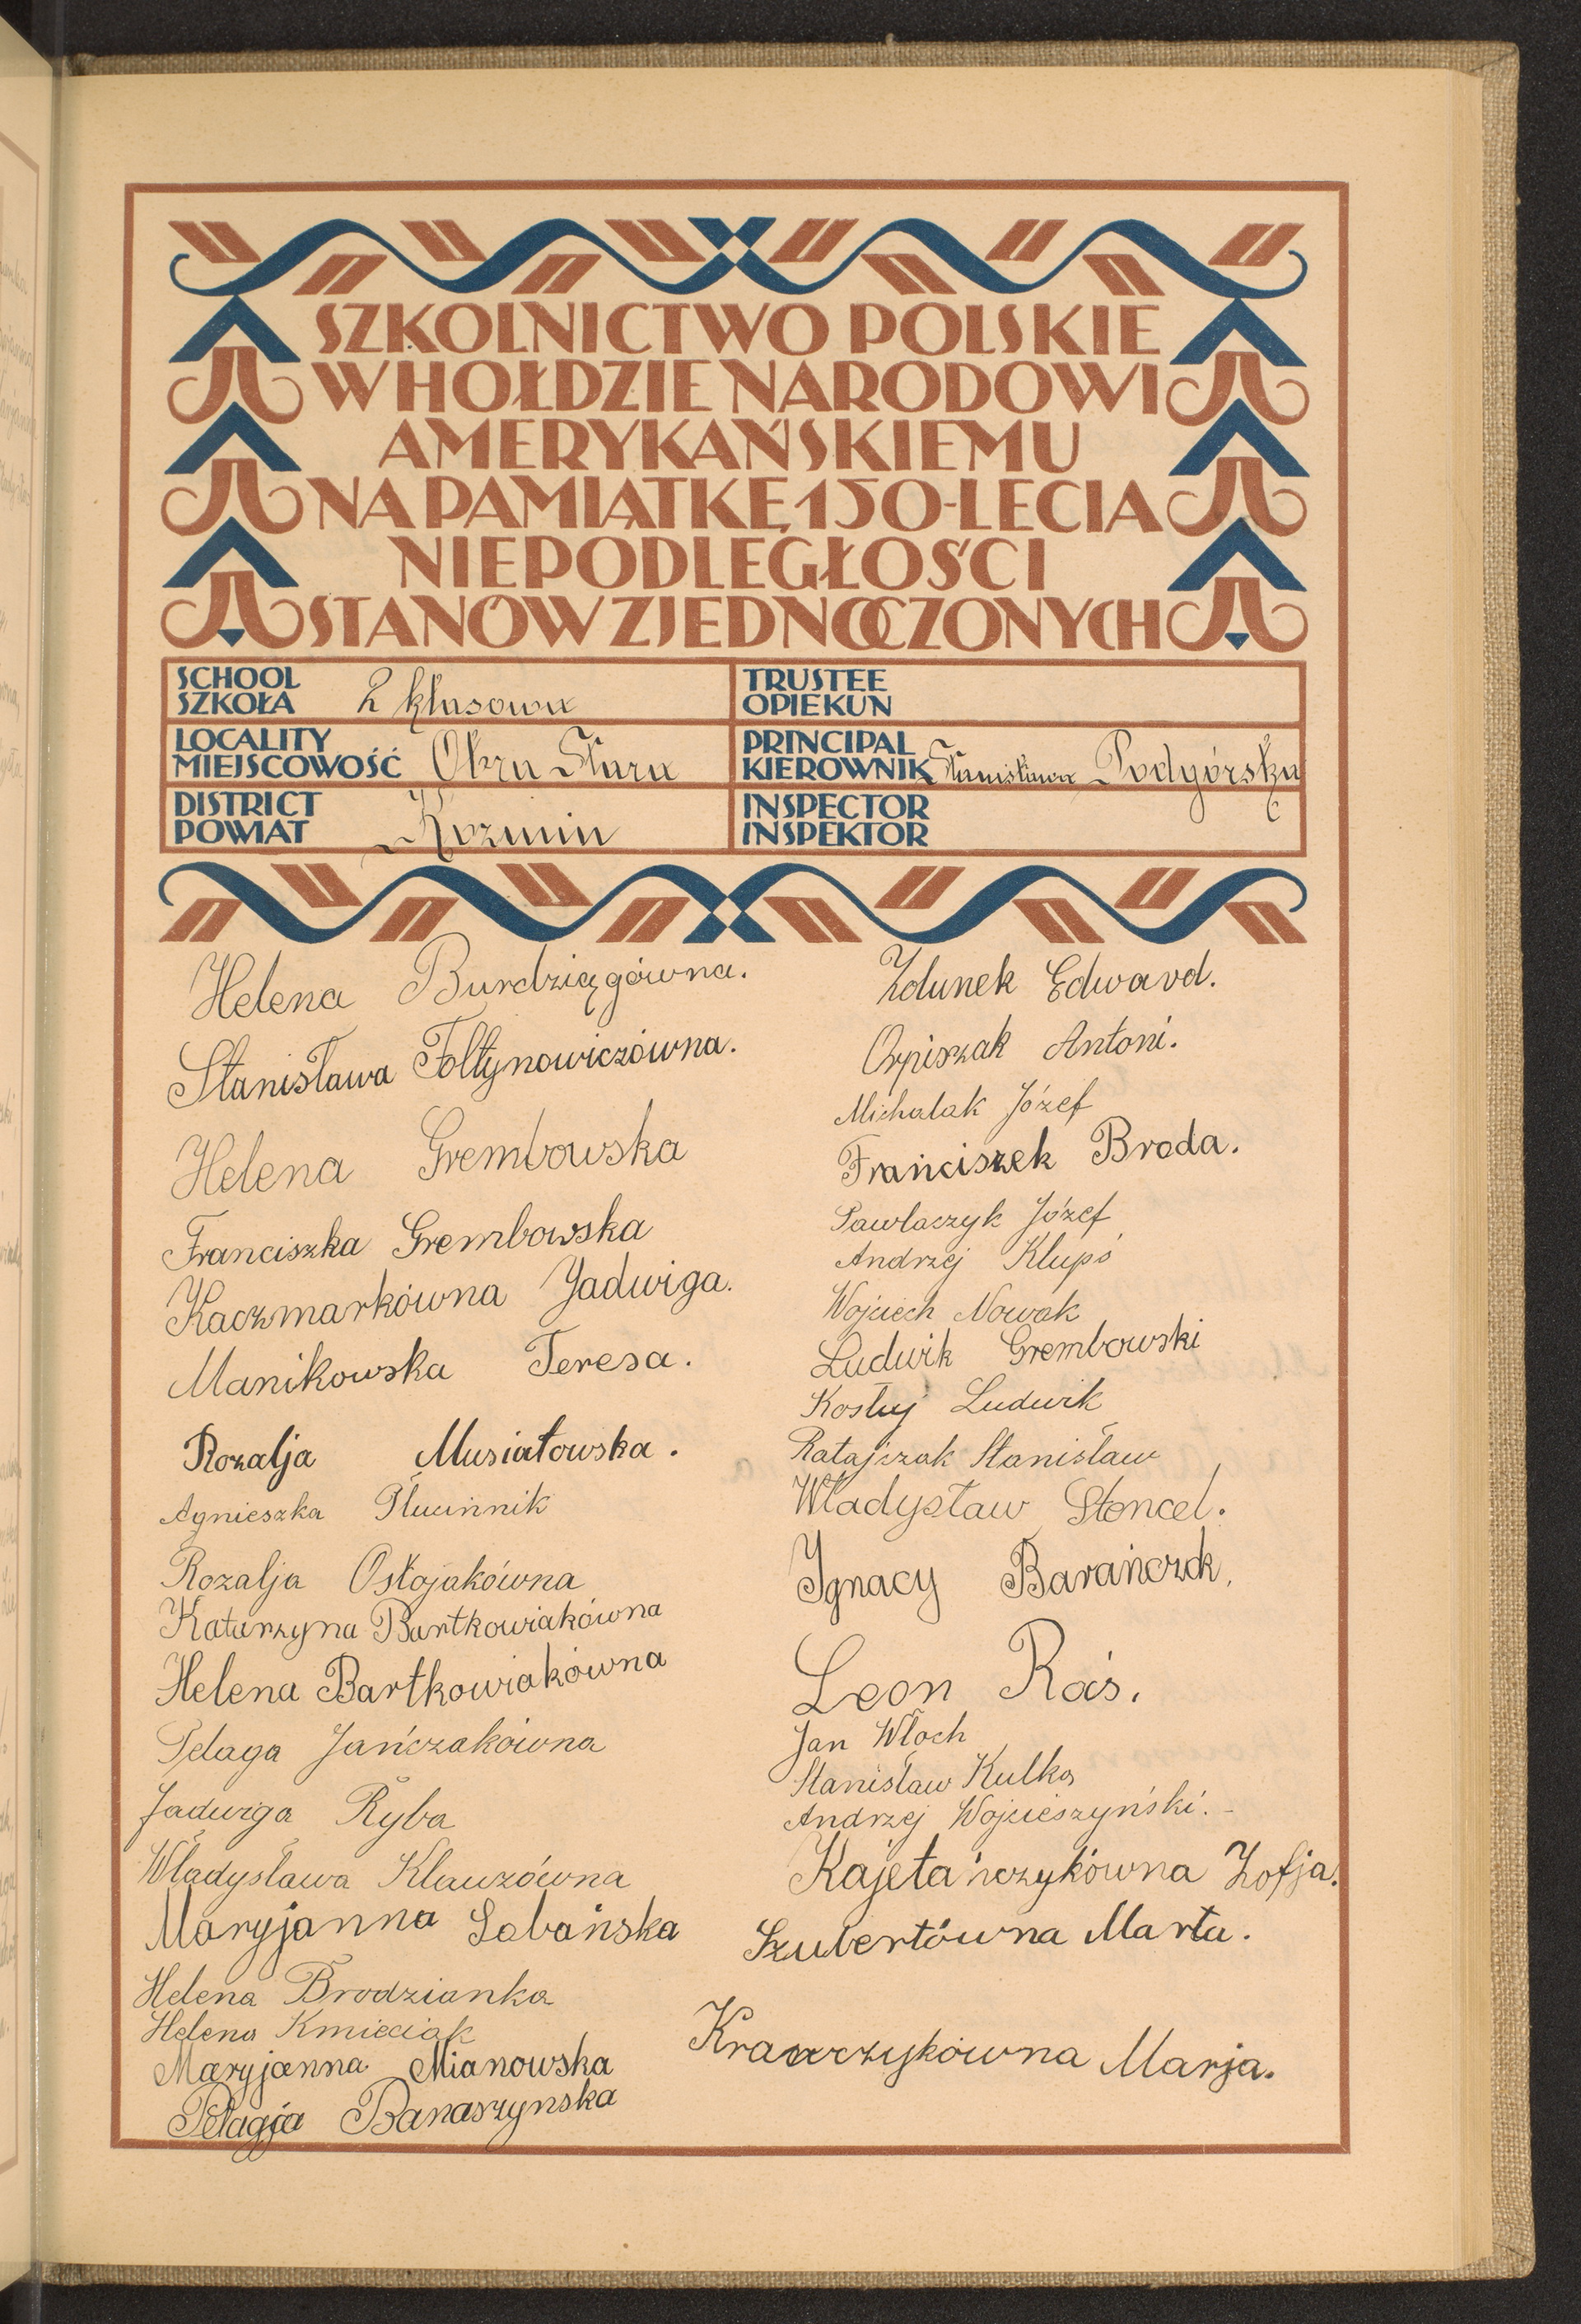 SZKOLNICTWO POLSKIE
W HOŁDZIE NARODOWI
AMERYKAŃSKIEMU
NA PAMIĄTKĘ 150-LECIA
NIEPODLEGŁOŚCI
STANÓW ZJEDNOCZONYCH
SCHOOL
SZKOŁA 2 klasowa
TRUSTEE
OPIEKUN
LOCALITY
MIEJSCOWOŚĆ Obra Stara
PRINCIPAL
KIEROWNIK Stanisława Podgórska
DISTRICT
POWIAT Kozmin
INSPECTOR
INSPEKTOR
Helena Burdziągówna.
Stanisława Fołtynowiczówna.
Helena Grembowska
Franciszka Grembowska
Kaczmarkówna Jadwiga.
Manikowska Teresa.
Rozalja Musiałowska.
Agnieszka Płucinnik
Rozalja Ostojakówna
Katarzyna Bartkowiakówna
Helena Bartkowiakówna
Pelaga Jańczakówna
Jadwiga Ryba
Władysława Klauzówna
Maryjanna Labańska
Helena Brodzianka
Helena Kmieciak
Maryjanna Mianowska
Pelagja Banaszynska
Zdunek Edward.
Orpiszak Antoni.
Michalak Józef
Franciszek Broda.
Pawlaczyk Józef
Andrzej Klupś
Wojciech Nowak
Ludwik Grembowski
Kostuj Ludwik
Ratajczak Stanisław
Władysław Stencel.
Ignacy Barańczak.
Leon Raś.
Jan Włoch
Stanisław Kulka
Andrzej Wojcieszyński.-
Kajetańczykówna Zofja.
Szubertówna Marta.
Krawczykówna Marja.